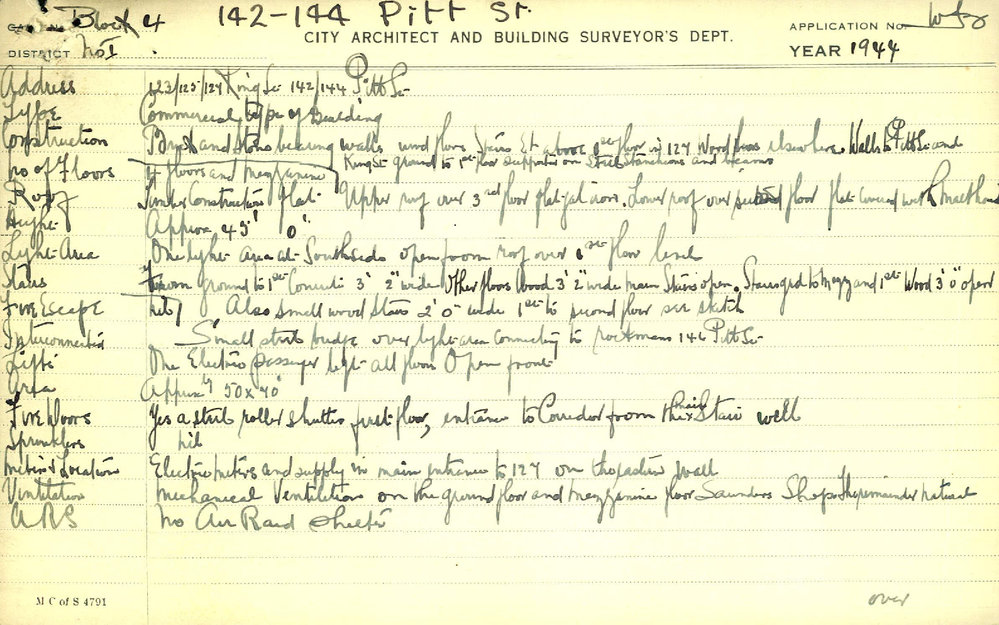 Block 4 142-144 Pitt St. APPLICATION No.
CITY ARCHITECT AND BUILDING SURVEYOR'S DEPT.
DISTRICT No 1 YEAR 1944
Address 123/125/127 King St 142/144 Pitt St
Type Commercial type of Building
Construction Brick and stone bearing walls wood floors Stairs Et above 1st floor in 127 Wood floors elsewhere Walls to Pitt St and
King St ground to 1st floor supported on Steel Stanchions and beams
No of Floors 4 floors and mezzanine
Roof Timber Construction flat Upper roof over 3rd floor flat gal iron. Lower roof over second floor flat covered with Malthoid
Height Approx 45' 0"
Light Area One light area at South side open from roof over 1st floor level
Stairs From ground to 1st Concrete 3' 2" wide Other floors Wood 3' 2" wide main Stairs open. Stairs grd to Mezz and 1st Wood 3' 0" open
Fire Escape nil Also small wood stairs 2' 0" wide 1st to second floor see sketch
Interconnected Small steel bridge over light area connecting to Rockmans 146 Pitt St
Lifts One Electric passenger lift all floors Open front
Area Approx 50 x 40'
Fire Doors Yes a steel roller shutter first floor, entrance to Corridor from the main Stair well
Sprinklers nil
Meters & Location Electric meters and supply in main entrance to 127 on the eastern wall
Ventilation Mechanical Ventilation on the ground floor and mezzanine floor Saunders Shop The remainder natural
ARS No Air Raid Shelter
M C of S 4791 over